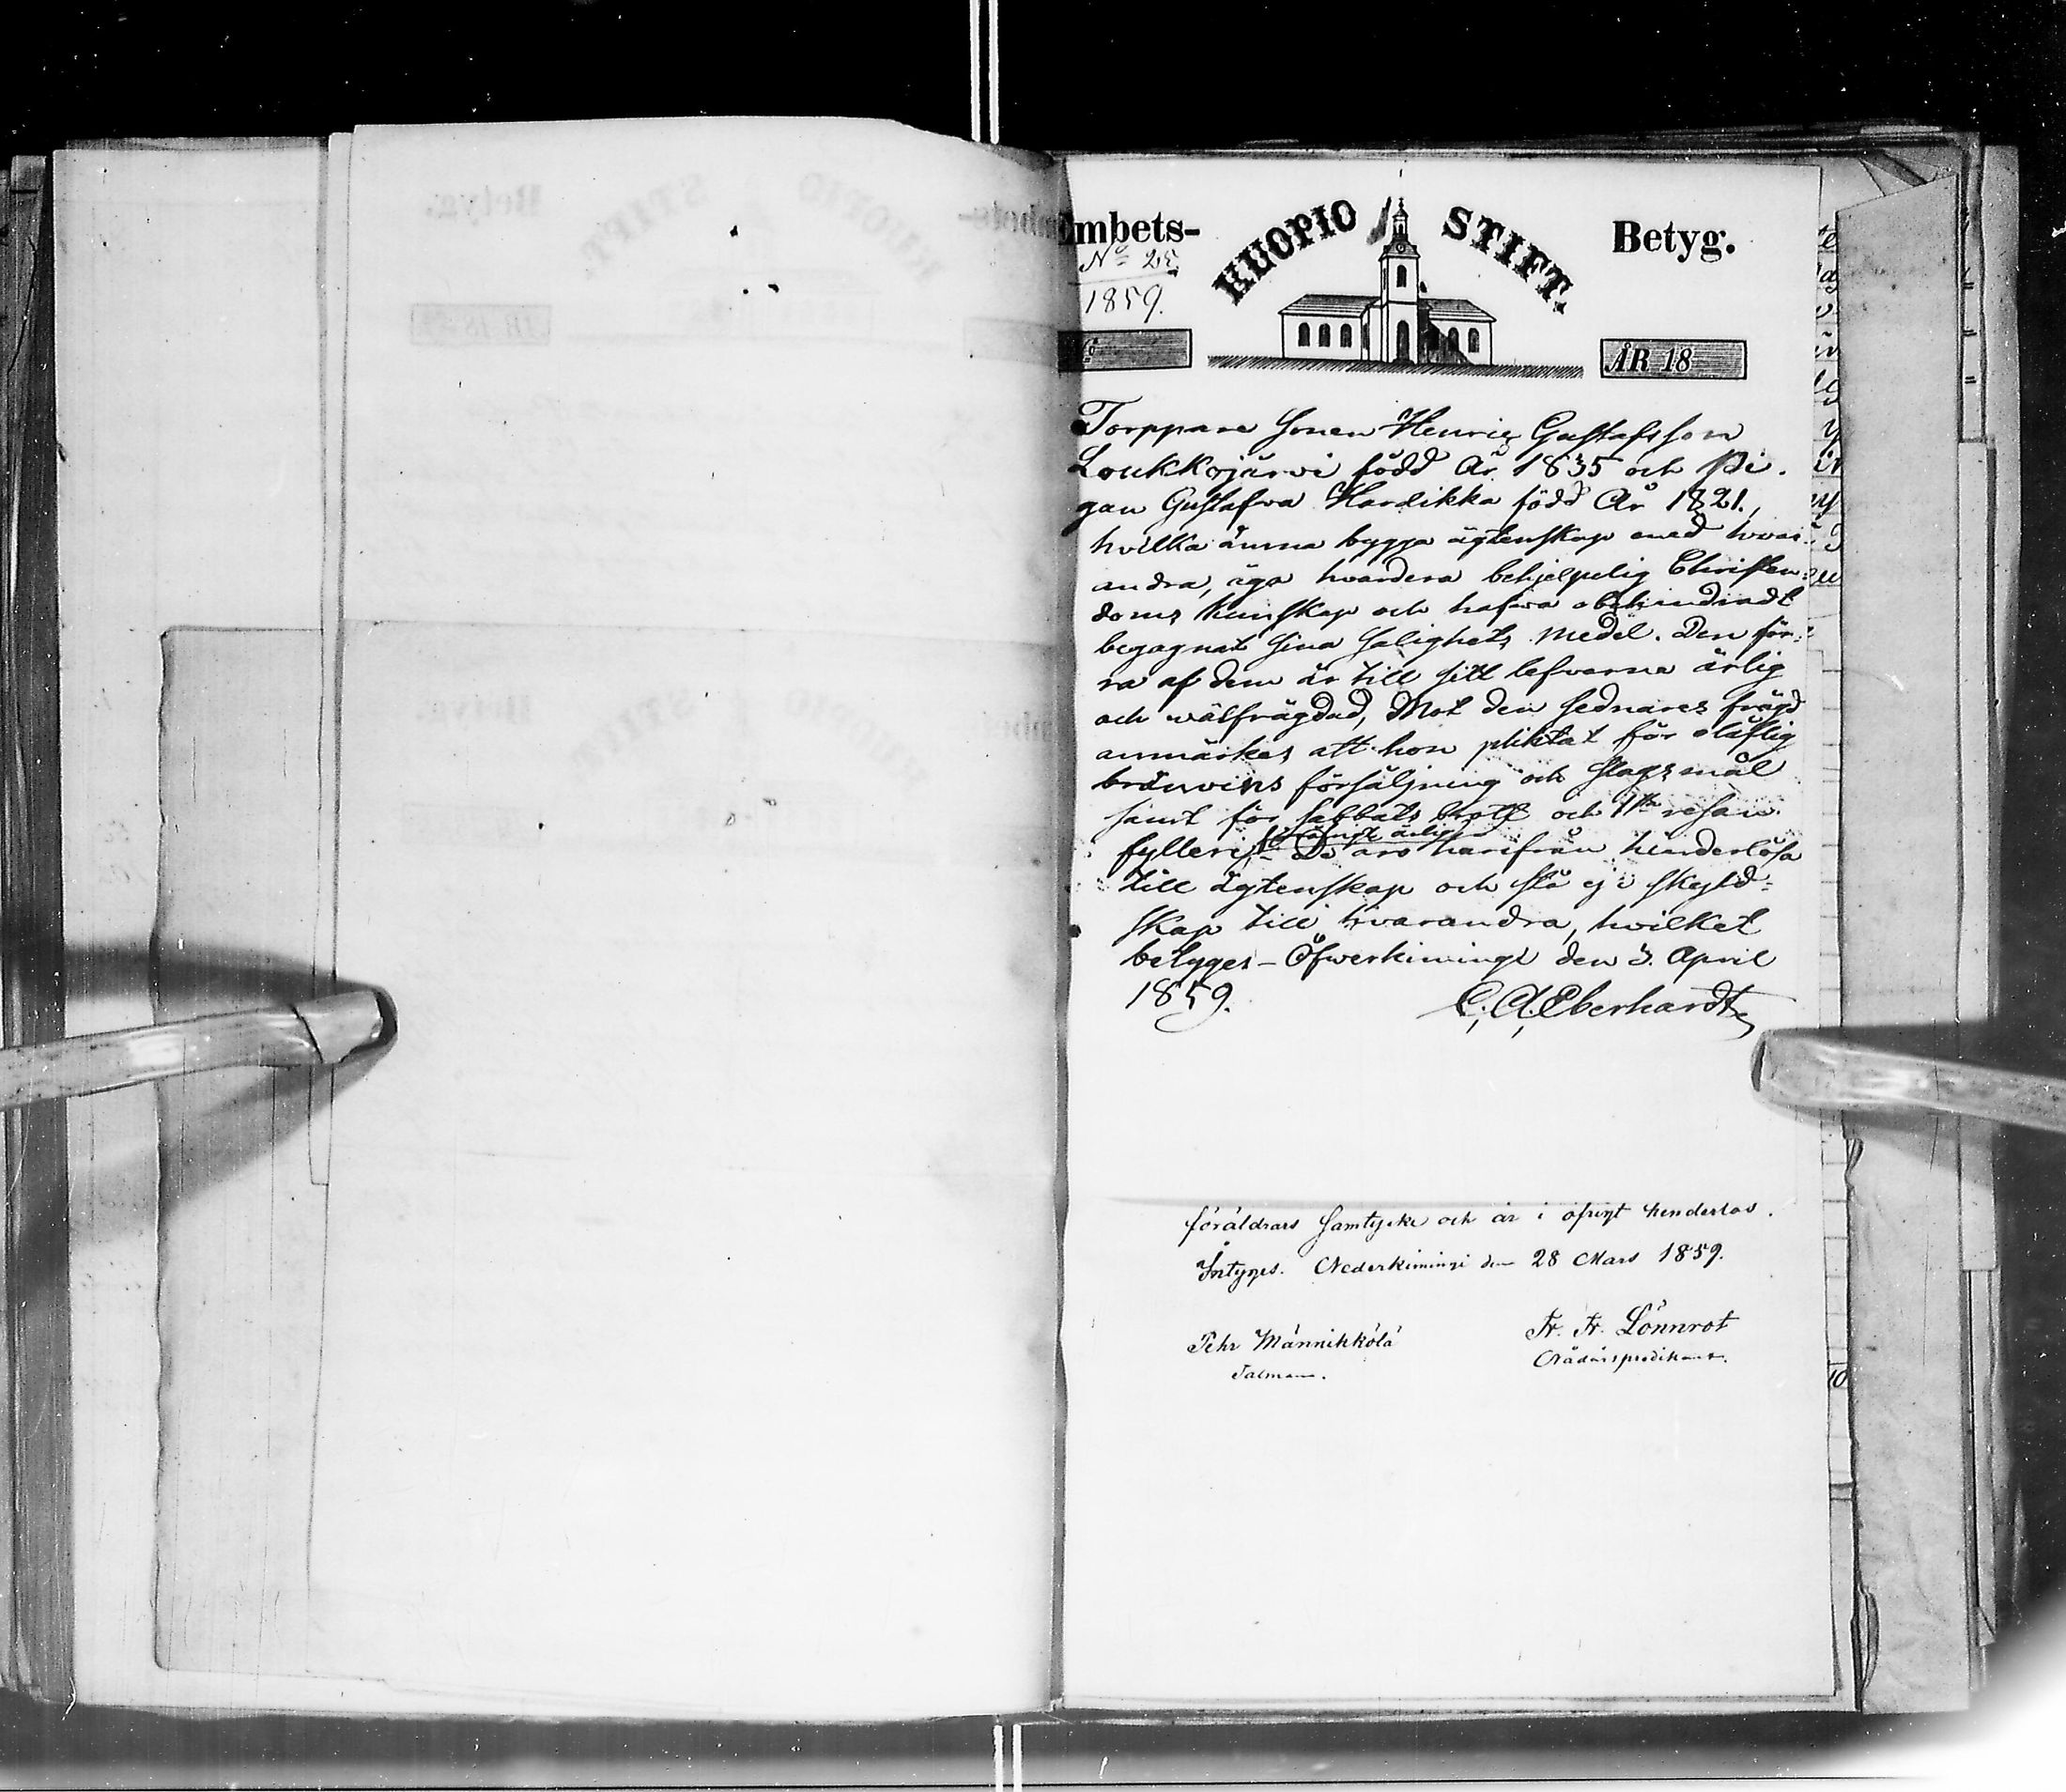 Embets-
KUOPIO STIFT.
Betyg.
No 25
1859.
ÅR 18
Torppare Sonen Henric Gustafsson
Loukkojärwi född År 1835 och Pi-
gan Gustafva Hardikka född År 1821.,
hvilka ämna bygga ägtenskap med hvar-
andra, äga hvardera behjelpelig Christen-
doms kunskap och hafva obehindradt
begagnat sina salighets medel. Den för-
ra af dem är till sitt lefverne ärlig
och wälfrägdad, Mot den sednares frägd
anmärkes att hon pliktat för olaflig
bränvins försäljning och slagsmål
samt för sabbats brott och 1sta resan
fylleri, i öfrigt ärlig
De äro härifrån hinderlösa
till ägtenskap och stå ej i skyld-
skap till hvarandra, hvilket
betyges – Öfwerkiminge den 3. April
1859.
C. A. Eberhardt
föräldrars samtycke och är i öfrigt henderlös.
Intyges. Nederkiminge den 28 Mars 1859.
Pehr Männikkölä
Talman.
Fr. Fr. Lönnrot
Nådårspredikant.
10